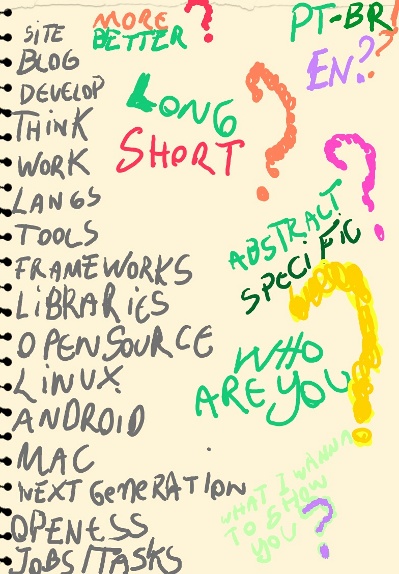 SiTE
BLOG
DEVELOP
THiNK
WORK
LANGS
TOOLS
FRAMEWORKS
LiBRARiES
OPENSOURCE
LiNUX
ANDROID
MAC
NEXT GeNERATiON
OPENESS
JOBS/TASKS
MORE
BETTER ?
PT-BR
EN? ?
LONG
SHORT ?
ABSTRACT
SPECiFiC ?
WHO
ARE YOU ?
WHAT I WANNA
TO SHOW
YOU ?